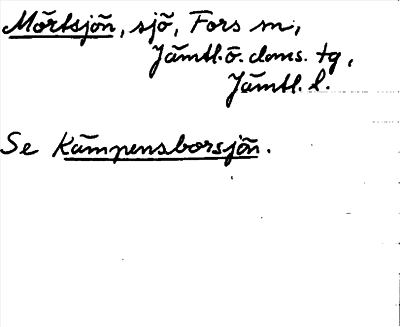 Mörtsjön, sjö, Fors sn,
Jämtl. ö. doms. tg,
Jämtl. l.
Se Kämpensborsjön.